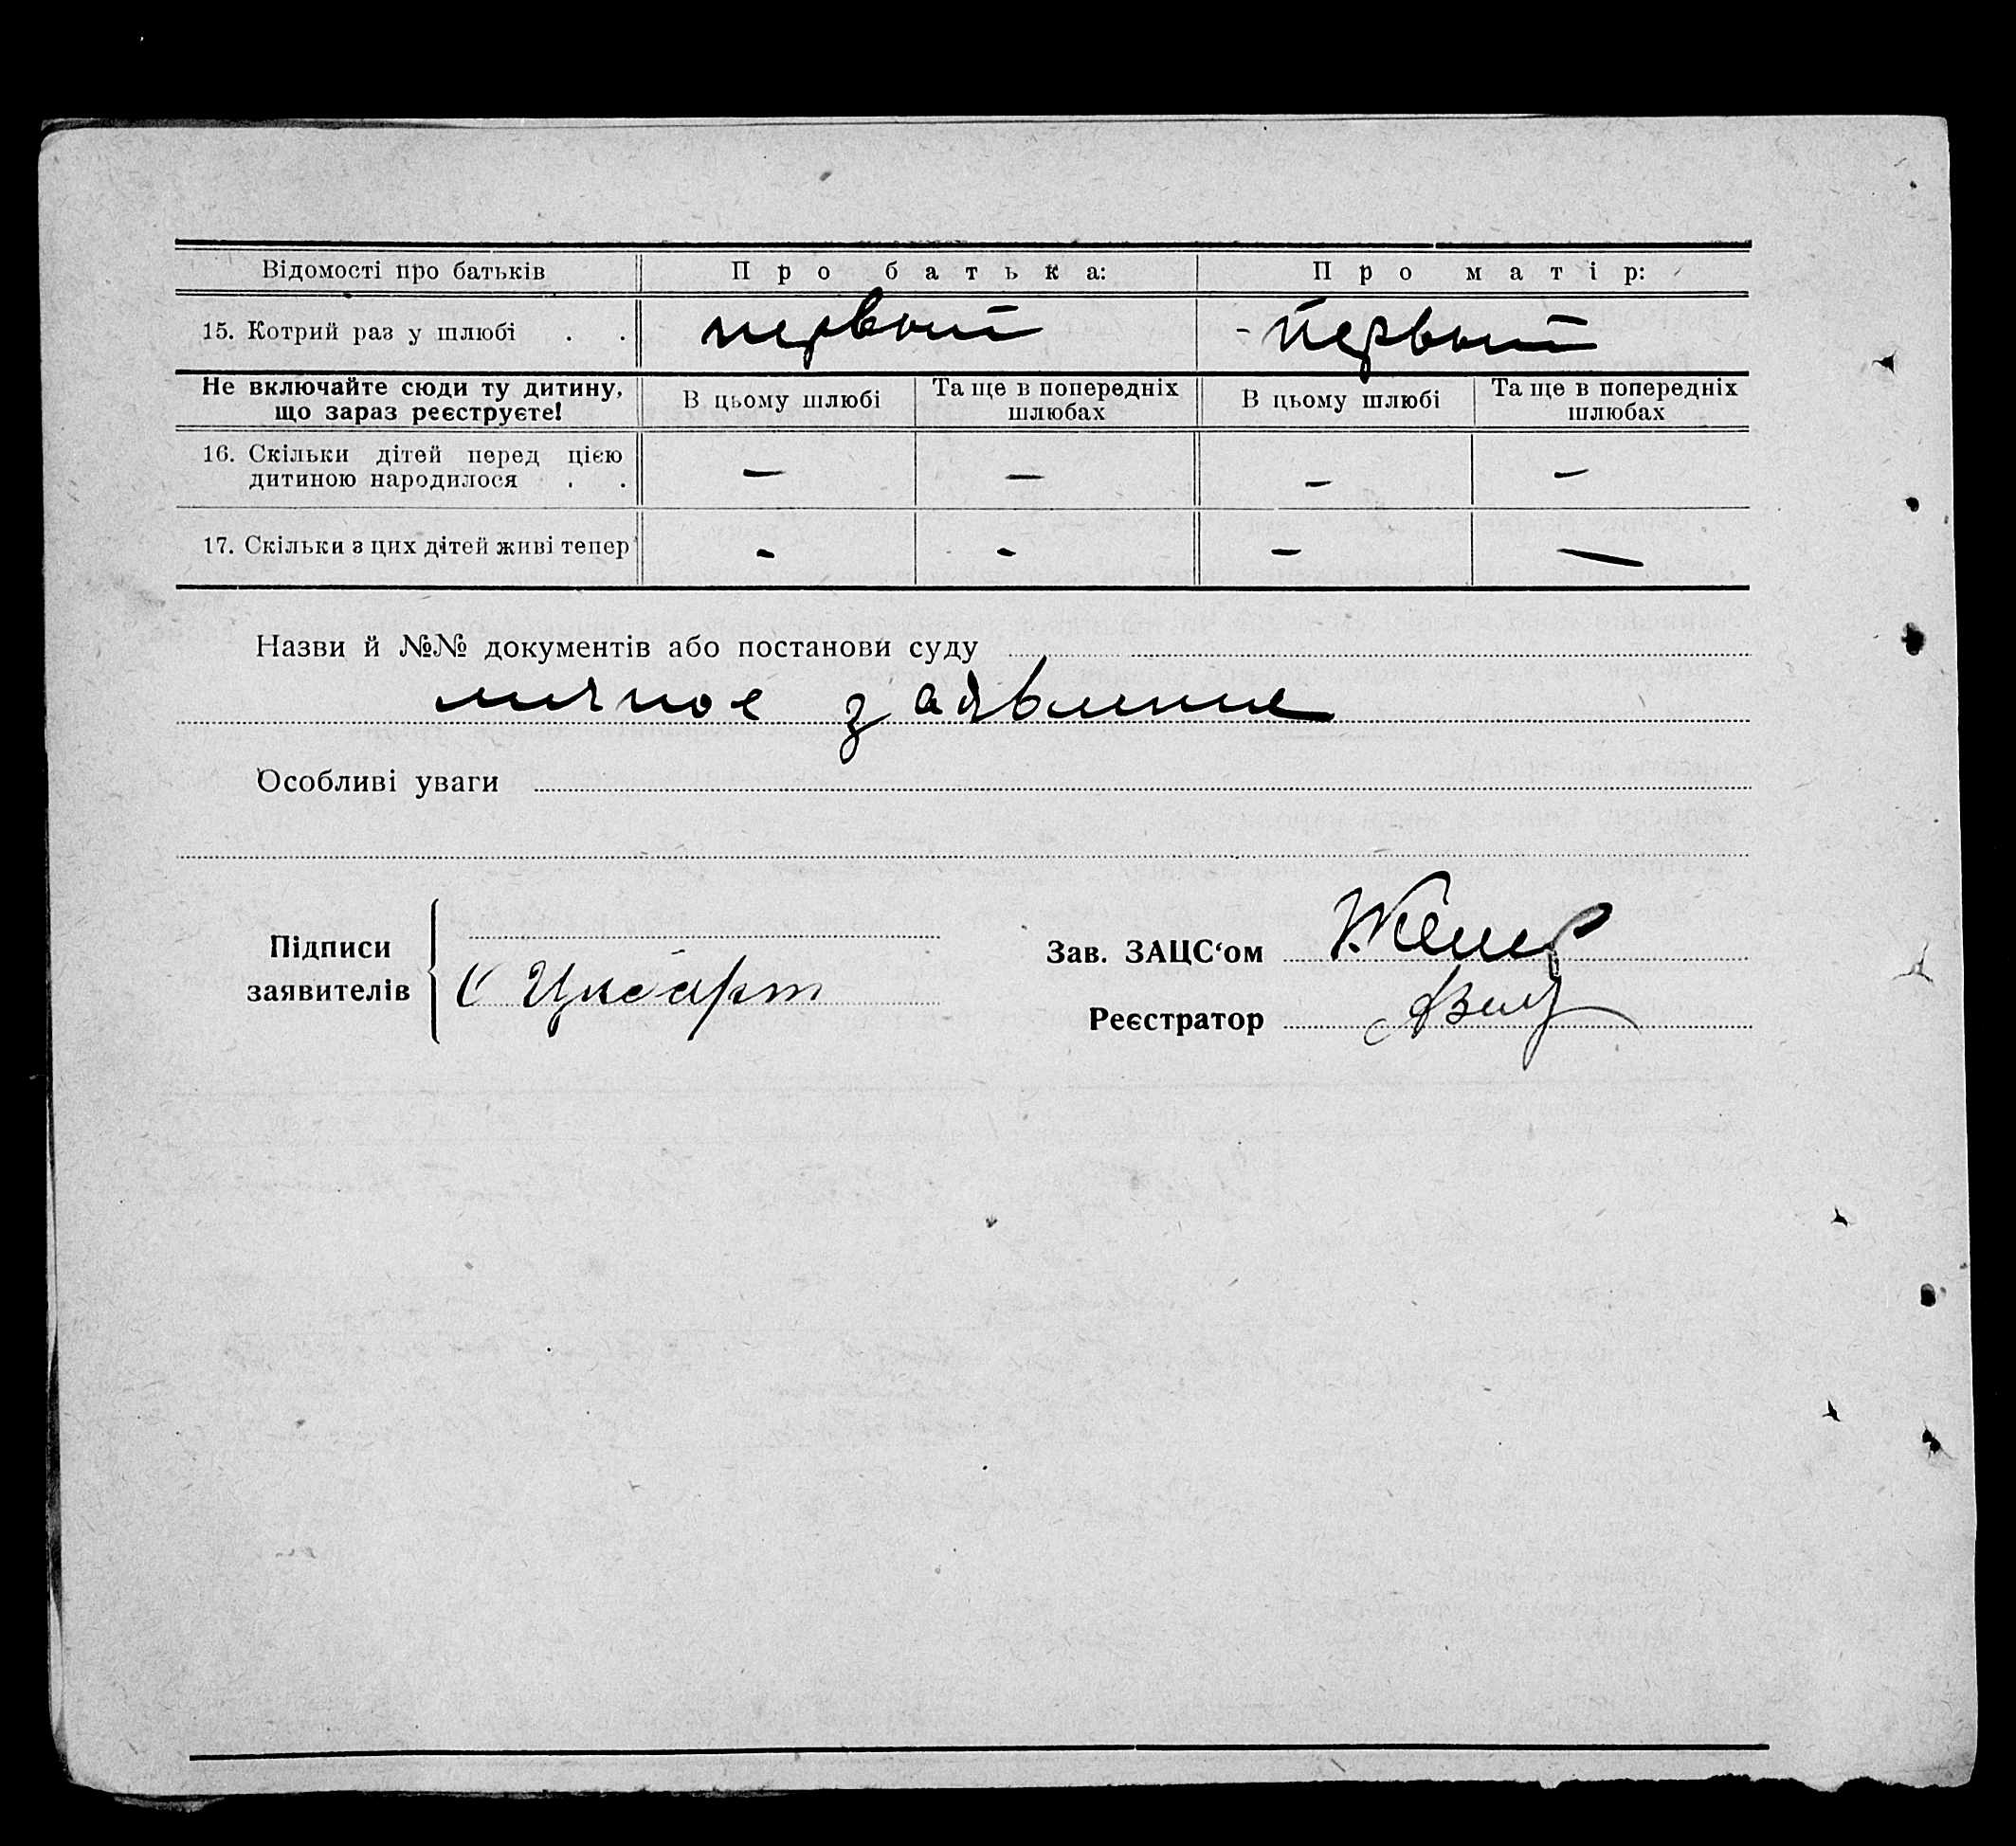 Відомості про батьків Про батька: Про матір:
15. Котрий раз у шлюбі . . первый - первый
Не включайте сюди ту дитину, що зараз реєструєте!
В цьому шлюбі Та ще в попередніх шлюбах В цьому шлюбі Та ще в попередніх шлюбах
16. Скільки дітей перед цією
дитиною народилося . . — — — —
17. Скільки з цих дітей живі тепер - - — —
Назви й №№ документів або постанови суду
личное заявление
Особливі уваги
Підписи
заявителів
Зав. ЗАЦС‘ом
Реєстратор